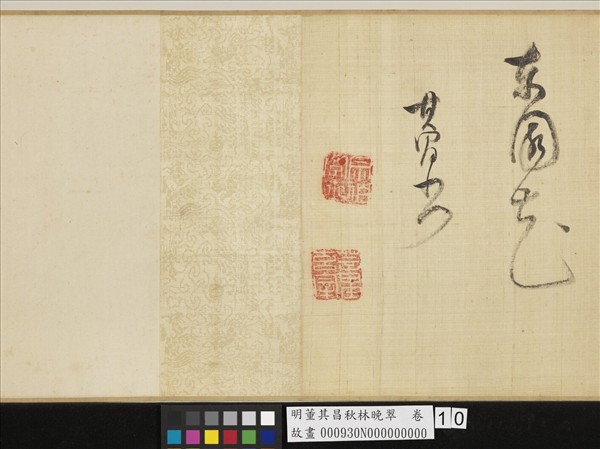 東園花
其昌書
宗伯學士
明董其昌秋林晚翠　卷
故畫 000930N000000000
10